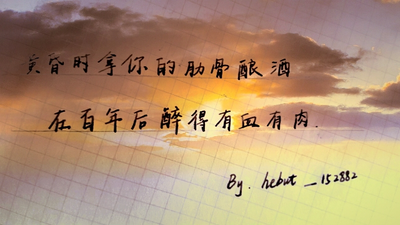 黄昏时拿你的肋骨酿酒
在百年后醉得有血有肉.
By. hebut_152882